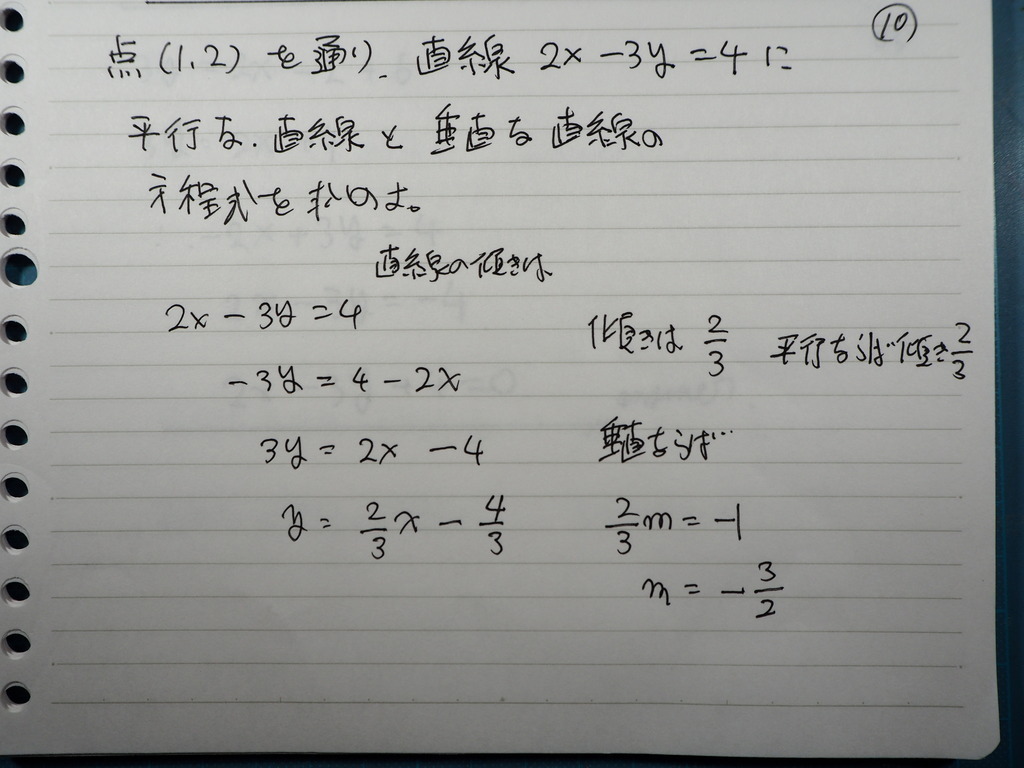 ⑩
点(1,2)を通り、直線 2x-3y=4に
平行な、直線と垂直な直線の
方程式を求めよ。
直線の傾きは
2x-3y=4
傾きは 2/3
平行ならば傾き2/3
-3y=4-2x
3y=2x-4
垂直ならば…
y=2/3x-4/3
2/3m=-1
m=-3/2